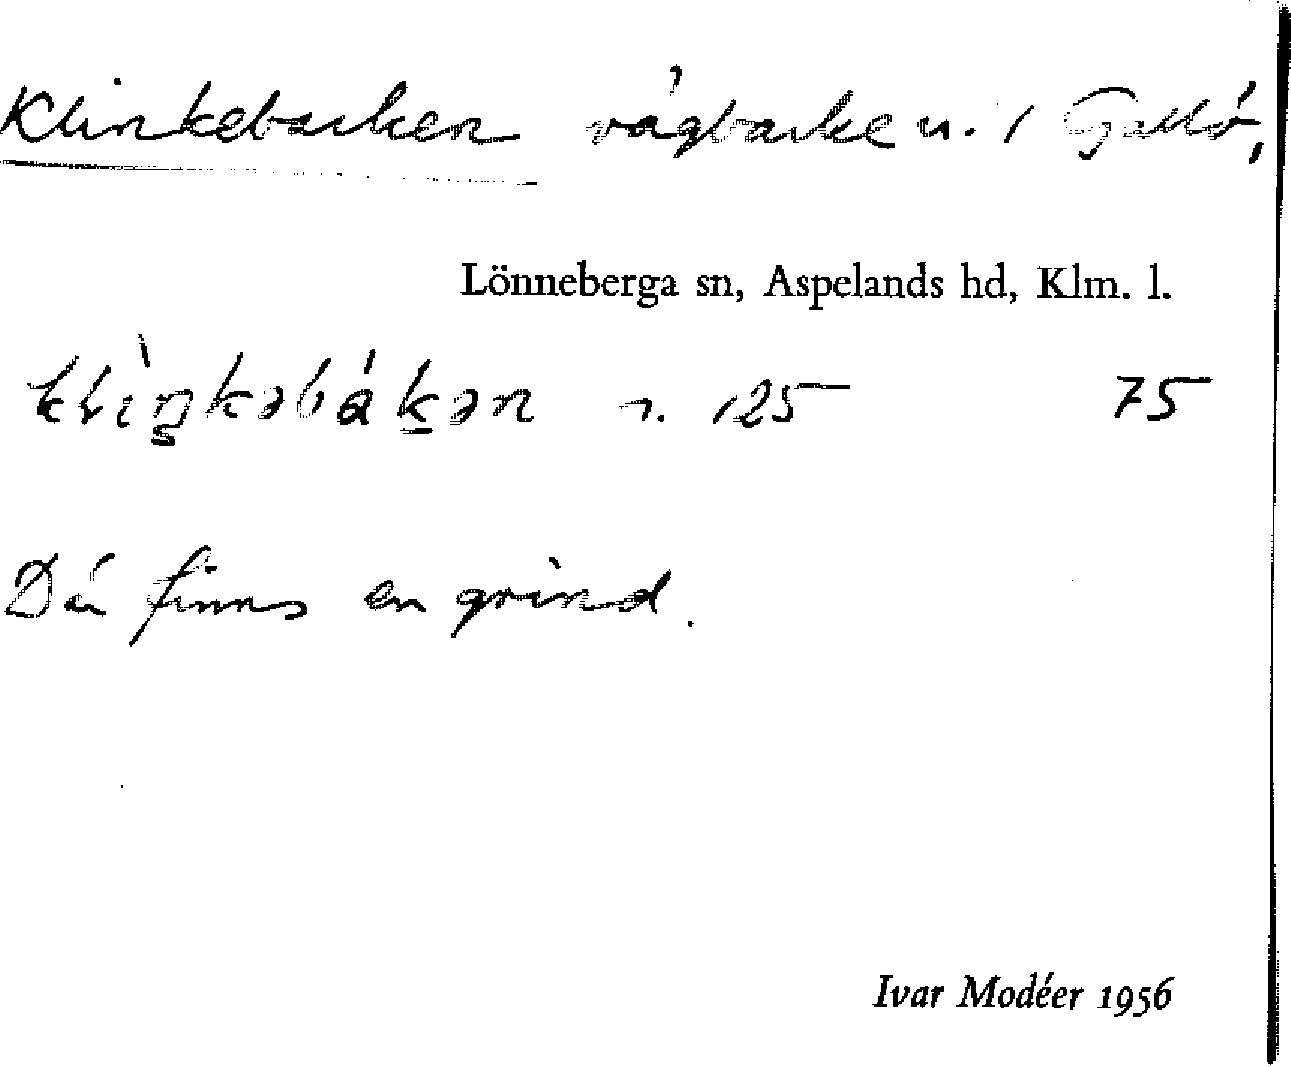 Klinkebacken vägbacke u. 1
Lönneberga sn, Aspelands hd, Klm. l.
n. 125 75
Där finns en grind.
Ivar Modéer 1956